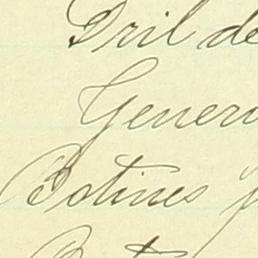 Dril de
Genero
Botines p
Bot